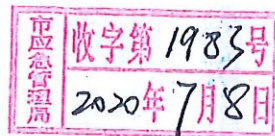 市应急管理局
收字第1983号
2020年7月8日